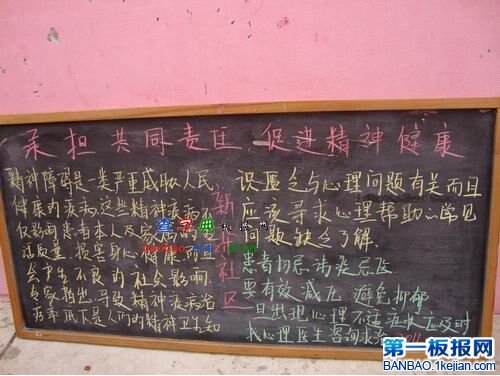 承担共同责任，促进精神健康
精神障碍是一类严重威胁人民
健康的疾病,这些精神疾病不
仅影响患者本人及家庭的生
活质量,损害身心健康,而且
会产生不良的社会影响
专家指出,导致精神疾病治
疗率低下是人们的精神卫生知
新 社区
识匮乏与心理问题有关而且
应该寻求心理帮助心常见
问题缺乏了解.
患者切忌讳疾忌医.
要有效减压,避免抑郁
一旦出现心理不适症状应及时
找心理医生咨询求治
查字典
第一板报网
BANBAO.1kejian.com